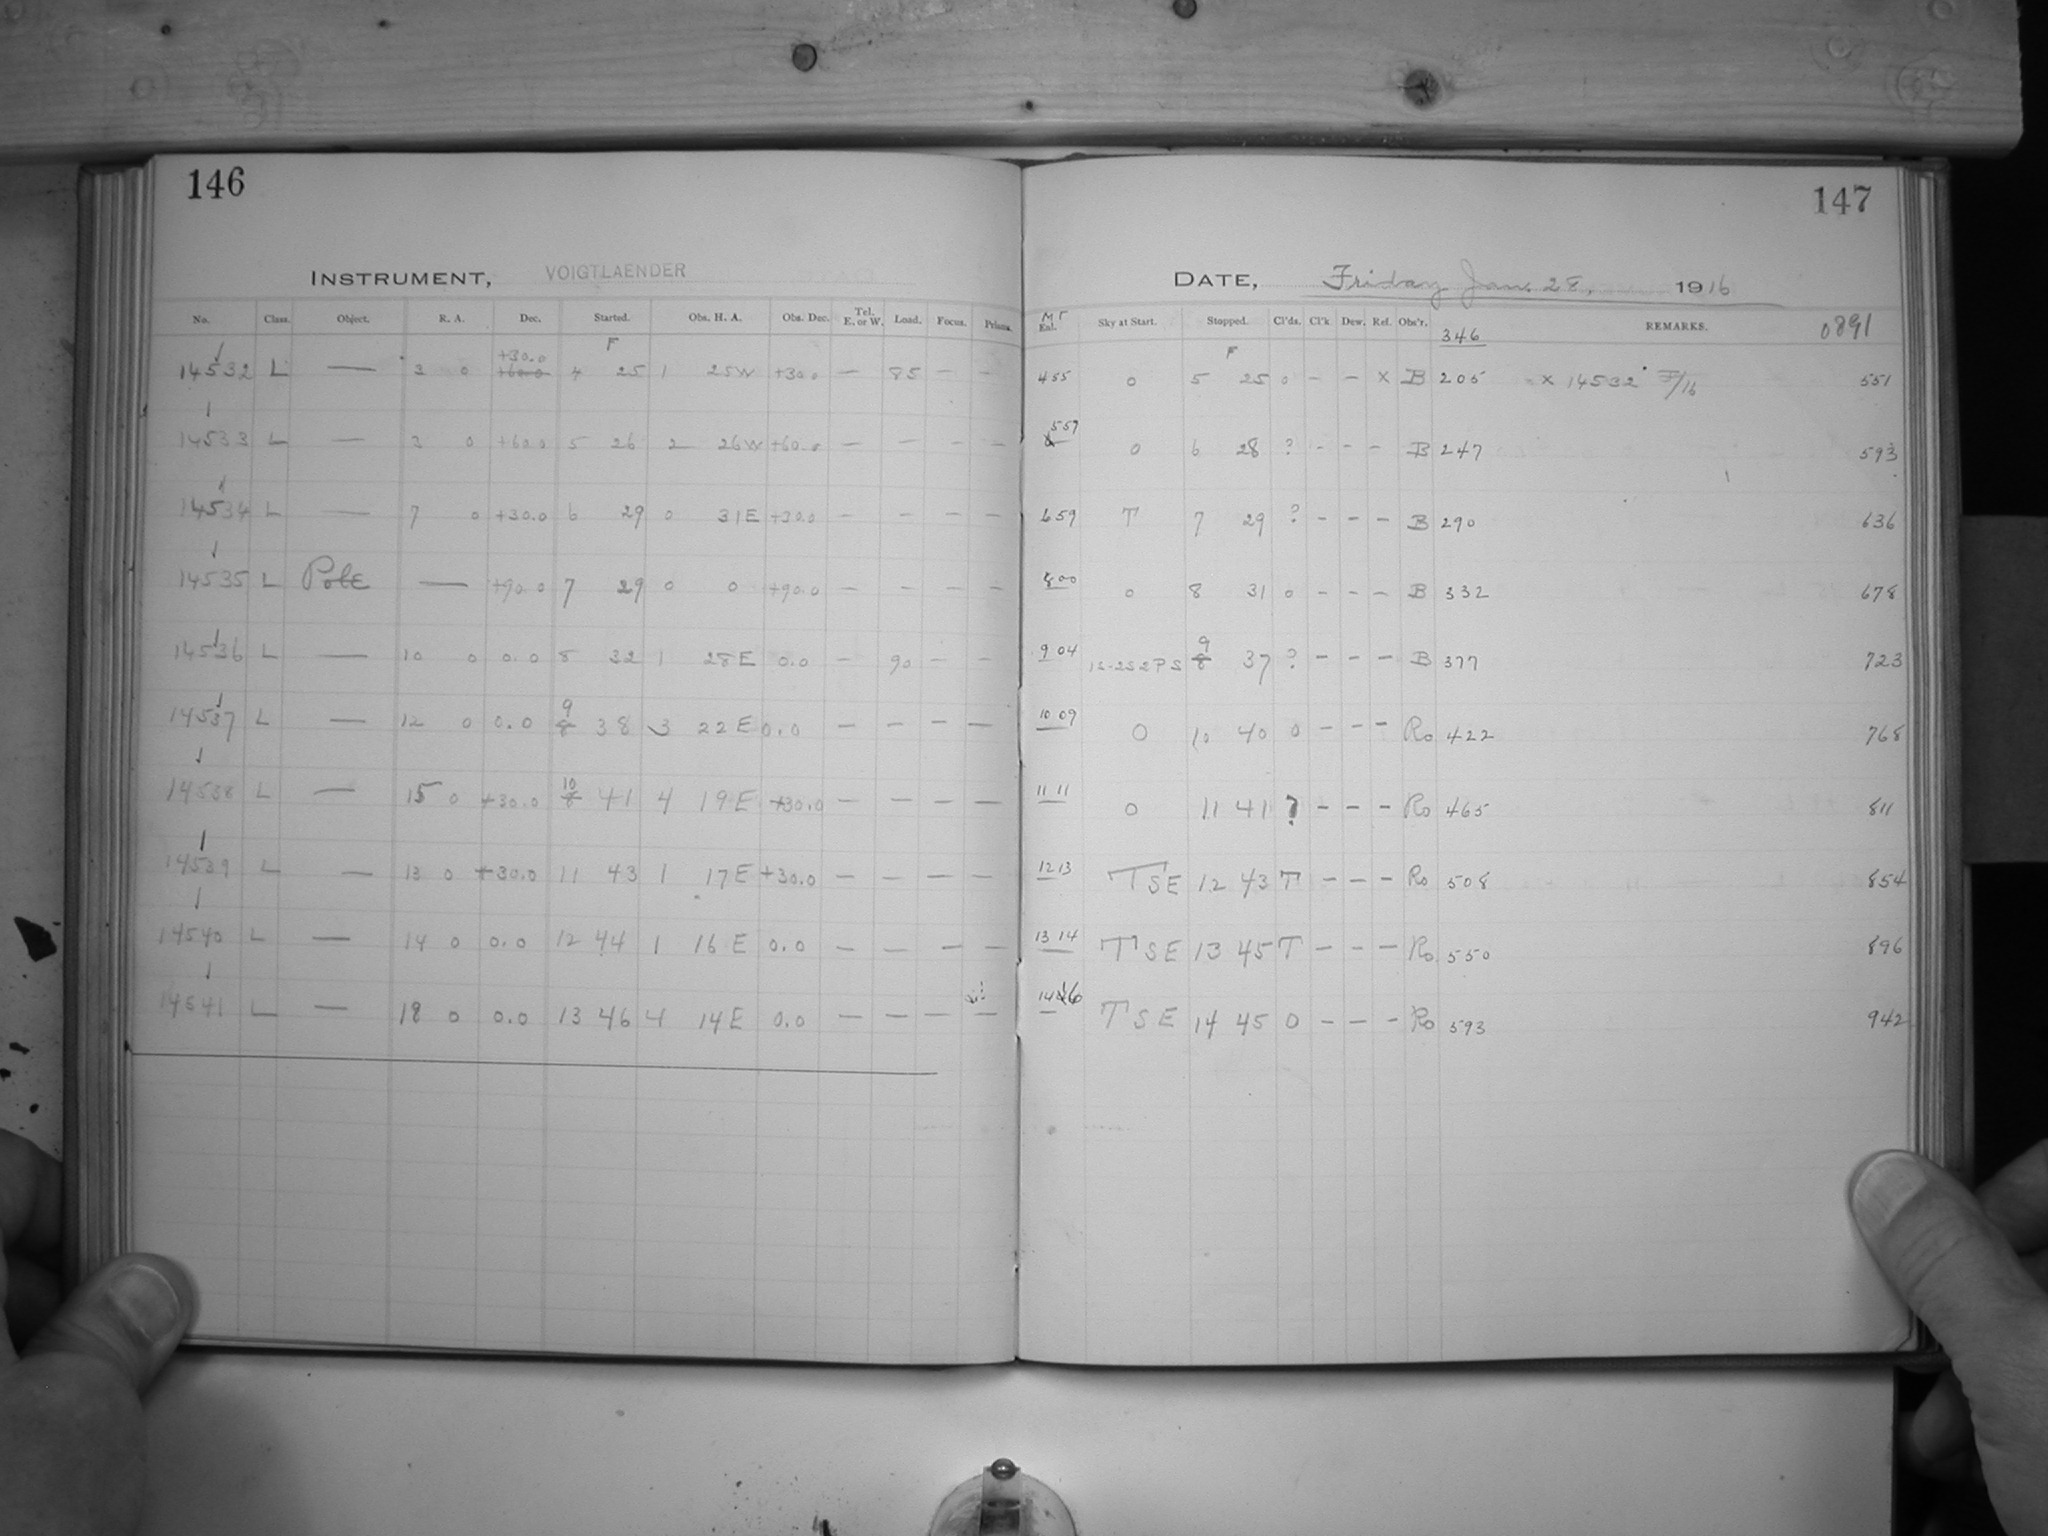 146
INSTRUMENT, VOIGTLAENDER
No. Class. Object. R. A. Dec. Started. Obs. H. A. Obs. Dec. Tel. E. or W. Load. Focus. Prisms.
F
+30.0
14532 L — 3 0 +60.0 4 25 1 25W +30.0 — 85 — —
14533 L — 3 0 +60.0 5 26 2 26W +60.0 — — — —
14534 L — 7 0 +30.0 6 29 0 31E +30.0 — — — —
14535 L Pole — +90.0 7 29 0 0 +90.0 — — — —
14536 L — 10 0 0.0 8 32 1 28E 0.0 — 90 — —
9
14537 L — 12 0 0.0 8 38 3 22E 0.0 — — — —
10
14538 L — 15 0 +30.0 8 41 4 19E +30.0 — — — —
14539 L — 13 0 +30.0 11 43 1 17E +30.0 — — — —
14540 L — 14 0 0.0 12 44 1 16E 0.0 — — — —
14541 L — 18 0 0.0 13 46 4 14E 0.0 — — — —
147
DATE, Friday Jan. 28, 1916
Sky at Start. Stopped. Cl'ds. Cl'k. Dew. Ref. Obs'r. REMARKS. 0891
346
F
455 0 5 25 0 - - X B 205 X 14532 551
557
0 6 28 ? - - - B 247 593
659 T 7 29 ? - - - B 290 636
800 0 8 31 0 - - - B 332 678
9
904 8 37 ? - - - B 377 723
10 09 0 10 40 0 - - - Ro 422 768
11 11 0 11 41 ? - - - Ro 465 811
12 13 TSE 12 43 T - - - Ro 508 854
13 14 TSE 13 45 T - - - Ro 550 896
TSE 14 45 0 - - - Ro 593 942